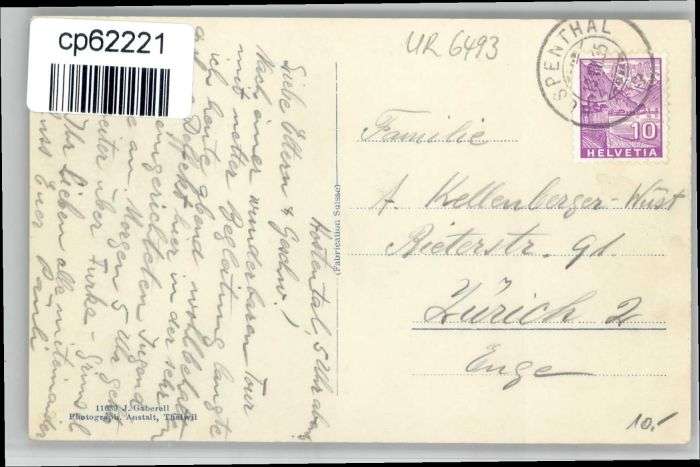 cp62221
UR 6493
SPENTHAL
10
HELVETIA
Hospental, 5 Uhr abends
Liebe Eltern & Geschw.!
Nach einer wunderbaren Tour
mit netter Begleitung langte
ich heute abend wohlbehalten
hier in der sehr
eingerichteten Jugend
an Morgen 5 Uhr geht
weiter über Furka - Grimsel
Ihr Lieben alle miteinander
Euer Pauli
(Fabrication Suisse)
Familie
A. Kellenberger-Wüst
Rieterstr. 91
Zürich 2
Enge
J. Gaberell
Photograph. Anstalt, Thalwil
10.-